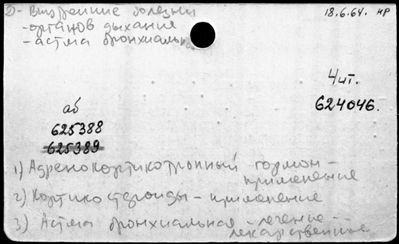 D- Внутренние болезни 18.6.64. нр
-органов дыхания
-астма бронхиальная
4 чт.
624046.
аб
625388
625389
1) Адренокортикотропный гормон-
применение
2) Кортикостероиды - применение
3) Астма бронхиальная - лечение -
лекарственное